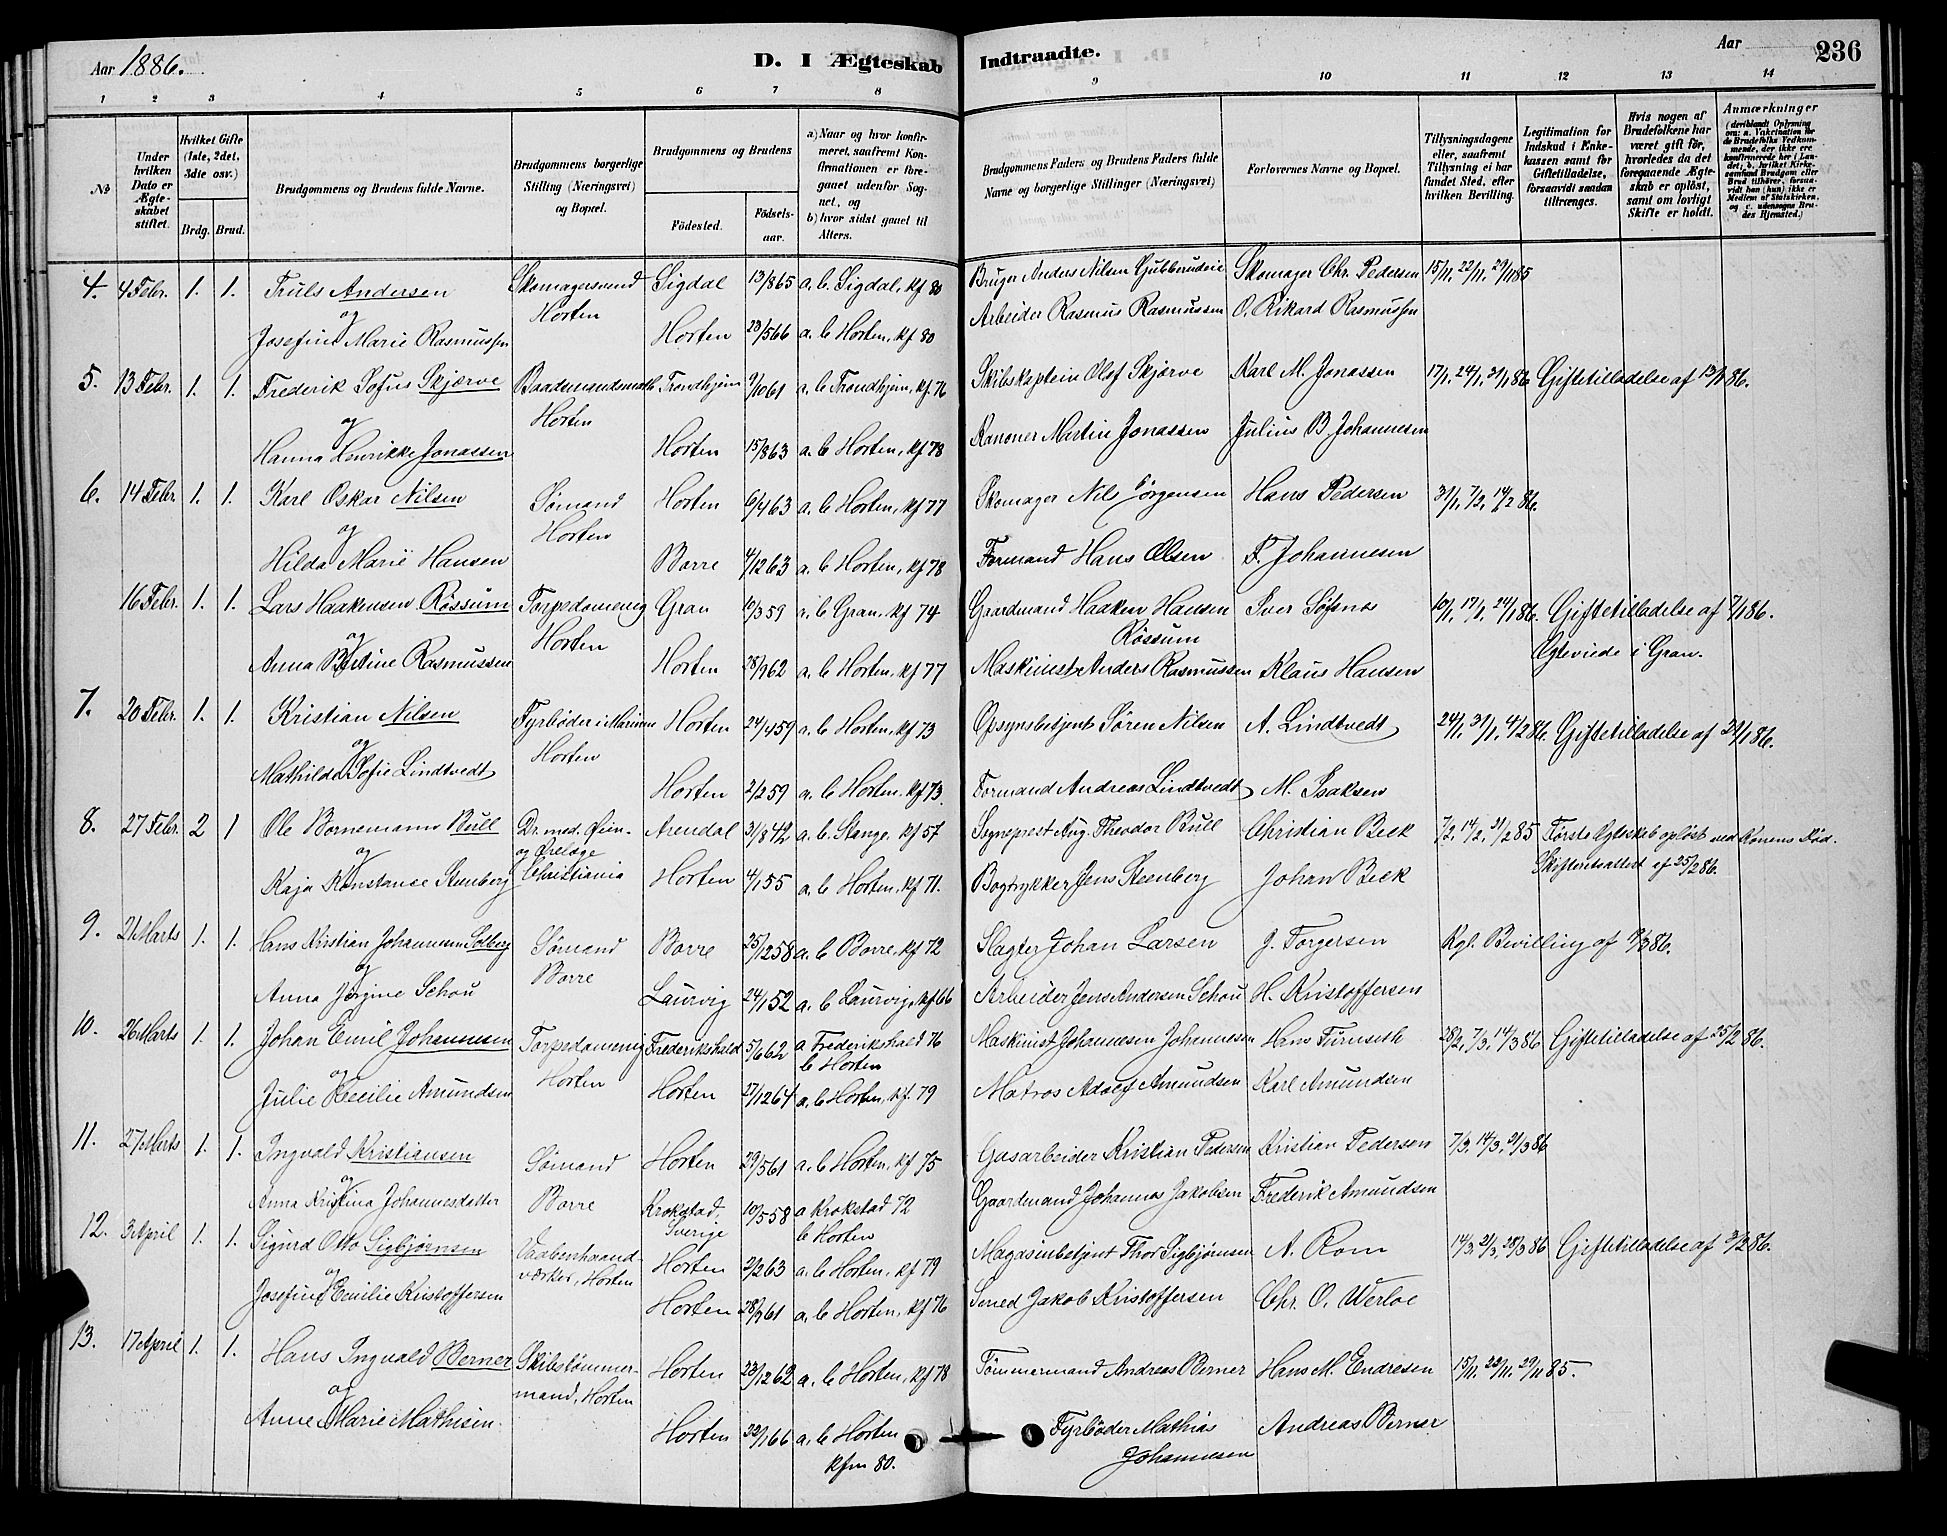 Aar 1886.
D. I Ægteskab Indtraadte.
Aar
236
1 2 3 4 5 6 7 8 9 10 11 12 13 14
No
Under hvilken Dato er Ægteskabet stiftet.
Hvilket Gifte (1ste, 2det, 3die osv.)
Brdg. Brud.
Brudgommens og Brudens fulde Navne.
Brudgommens borgerlige Stilling (Næringsvei) og Bopæl.
Brudgommens og Brudens
Fødested. Fødselsaar.
a) Naar og hvor konfirmeret, saafremt Konfirmationen er foregaaet udenfor Sognet, og
b) hvor sidst gaaet til Alters.
Brudgommens Faders og Brudens Faders fulde Navne og borgerlige Stillinger (Næringsvei)
Forlovernes Navne og Bopæl.
Tillysningsdagene eller, saafremt Tillysning ei har fundet Sted, efter hvilken Bevilling.
Legitimation for Indskud i Enkekassen samt for Giftetilladelse, forsaavidt saadan tiltrænges.
Hvis nogen af Brudefolkene har været gift før, hvorledes da det foregaaende Ægteskab er opløst, samt om lovligt Skifte er holdt.
Anmærkninger
(deriblandt Oplysning om: a. Vakcination for de Brudefolks Vedkommende, der ikke ere konfirmerede her i Landet, b. hvilket Kirkesamfund Brudgom eller Brud tilhører, forsaavidt han (hun) ikke er Medlem af Statskirken, og c. udensogns Brudes Hjemsted.)
4. 4 Febr. 1. 1. Truls Andersen Skomagersvend Sigdal 13/8 65 a. b. Sigdal, kf 80 Bruger Anders Nilsen Gubberudeie Skomager Chr. Pedersen 15/11, 22/11, 29/11 85
og Horten
Josefine Marie Rasmussen Horten 23/5 66 a. b Horten, kf 80 Arbeider Rasmus Rasmussen O. Rikard Rasmussen
5. 13 Febr. 1. 1. Frederik Sofus Skjærve Baadsmandsmath Trondhjem 9/10 61 a. b Trondhjem, kf 76 Skibskaptein Olaf Skjærve Karl M. Jonassen 17/1, 24/1, 31/1 86 Giftetilladelse af 13/1 86.
og Horten
Hanna Henrikke Jonassen Horten 15/8 63 a. b Horten, kf 78 Kanoner Martin Jonassen Julius B. Johannesen
6. 14 Febr. 1. 1. Karl Oskar Nilsen Sømand Horten 6/4 63 a. b Horten, kf 77 Skomager Nils Jørgensen Hans Pedersen 31/1, 7/2, 14/2 86.
og Horten
Hilda Marie Hansen Borre 4/12 63 a. b Horten, kf 78 Formand Hans Olsen F. Johannesen
16 Febr. 1. 1. Lars Haakensen Røssum Torpedomenig Gran 10/3 59 a. b Gran. kf 74 Gaardmand Haaken Hansen Røssum Iver Søfsnos 10/1, 17/1, 24/1 86. Giftetilladelse af 7/1 86.
og Horten Ægteviede i Gran.
Anna Bertine Rasmussen Horten 28/9 62 a. b Horten, kf 77 Maskinist Anders Rasmussen Klaus Hansen
7. 20 Febr. 1. 1. Kristian Nilsen Fyrbøder i Marinen Horten 24/4 59 a. b Horten, kf 73 Opsynsbetjent Søren Nilsen A. Lindtvedt 24/1, 31/1, 4/2 86. Giftetilladelse af 29/1 86.
og Horten
Mathilda Sofie Lindtvedt Horten 2/2 59 a. b Horten. kf 73. Formand Andreas Lindtvedt M. Isaksen
8. 27 Febr. 2 1 Ole Bornemann Bull Dr. med. Øien- og Ørelæge Christiania Arendal 31/8 42 a. b. Stange. kf 57 Sogneprest Aug. Theodor Bull Christian Beck 7/2, 14/2, 21/2 85 Første Ægteskab opløst ved Konens Død.
og Skifteretsattest af 25/2 86.
Kaja Konstance Steenberg Horten 4/1 55 a. b Horten, kf 71. Bogtrykker Jens Steenberg Johan Beck
9. 21 Marts 1. 1. Hans Kristian Johannesen Solberg Sømand Borre 25/12 58 a. b Borre, kf 72 Slagter Johan Larsen J. Torgersen Kgl. Bevilling af 8/3 86.
og Borre
Anna Jørgine Schou Laurvig 24/1 52 a. b Laurvig, kf 66 Arbeider Jens Andersen Schou H. Kristoffersen
10. 26 Marts 1. 1. Johan Emil Johannesen Torpedomenig Frederikshald 5/6 62 a Frederikshald 76 Maskinist Johannesen Johannesen Hans Furuseth 28/2, 7/3, 14/3 86 Giftetilladelse af 25/2 86.
og Horten b Horten
Julie Cecilie Amundsen Horten 27/12 64 a. b Horten, kf. 79 Matros Adolf Amundsen Karl Amundsen
11. 27 Marts 1. 1. Ingvald Kristiansen Sømand Horten 29/5 61 a. b Horten, kf 75 Gasarbeider Kristian Pedersen Kristian Pedersen 7/3, 14/3, 21/3 86
og Borre
Anna Kristina Johannesdatter Krokstad, Sverige 10/5 58 a Krokstad 72 b Horten Gaardmand Johannes Jakobsen Frederik Amundsen
12. 3 April 1. 1. Sigurd Otto Sigbjørnsen Vaabenhaandværker, Horten Horten 2/2 63 a. b Horten. kf 79 Magasinbetjent Thor Sigbjørnsen A. Rom 14/3, 21/3, 28/3 86 Giftetilladelse af 3/2 86.
og
Josefine Emilie Kristoffersen Horten 28/9 61 a. b Horten, kf 76 Smed Jakob Kristoffersen Chr. O. Werloe
13. 17 April 1. 1. Hans Ingvald Berner Skibstømmermand, Horten Horten 23/12 62 a. b Horten, kf 78 Tømmermand Andreas Berner Hans M. Endresen 15/11, 22/11, 29/11 85.
og
Anne Marie Mathisen Horten 22/1 66 a. b Horten kfm 80. Fyrbøder Mathias Johannesen Andreas Berner